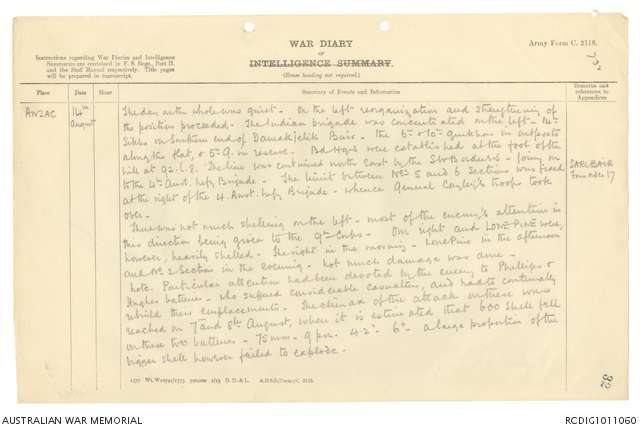 WAR DIARY
OF
INTELLIGENCE SUMMARY.
(Erase heading not required.)
Army Form C. 2118.
Instructions regarding War Diaries and Intelligence
Summaries are contained in F. S. Regs., Part II.
and the Staff Manual respectively. Title pages
will be prepared in manuscript.
Place
Date
Hour
Summary of Events and Information
Remarks and
references to
Appendices
ANZAC
14th
August
The day on the whole was quiet. On the left reorganization and strengthening of
the position proceeded. The Indian brigade was concentrated on the left - 14th
Sikhs on Southern end of Damakjelik Bair. The 6th & 10th Gurkhas in outposts
along the flat, & 5th G. in reserve. Bd. Hqrs were established at the foot of the
hill at 92.I.8. The line was continued north East by the S.W. Borderers - joining on
to the 4th Aust. Infy Brigade. The limit between Nos 5 and 6 Sections was fixed
at the right of the 4. Aust. Infy Brigade - whence General Cayley's troops took
over.
SARI BAIR
There was not much shelling on the left - most of the enemy's attention in
this direction being given to the 9th Corps. Our right and LONE PINE were,
however, heavily shelled. The right in the morning - Lone Pine in the afternoon
and No 2 Section in the Evening. Not much damage was done.
Note. Particular attention had been devoted by the enemy to Phillips &
Hughes batteries - who suffered considerable casualties, and had to continually
rebuild their emplacements. The climax of the attack on these was
reached on 7th and 8th August, when it is estimated that 600 shell fell
on these two batteries - 75 mm - 9 pr. 4.2" - 6" - a large proportion of the
bigger shell however failed to explode.
32
A.D.S.S./Forms/C. 2118.
AUSTRALIAN WAR MEMORIAL
RCDIG1011060